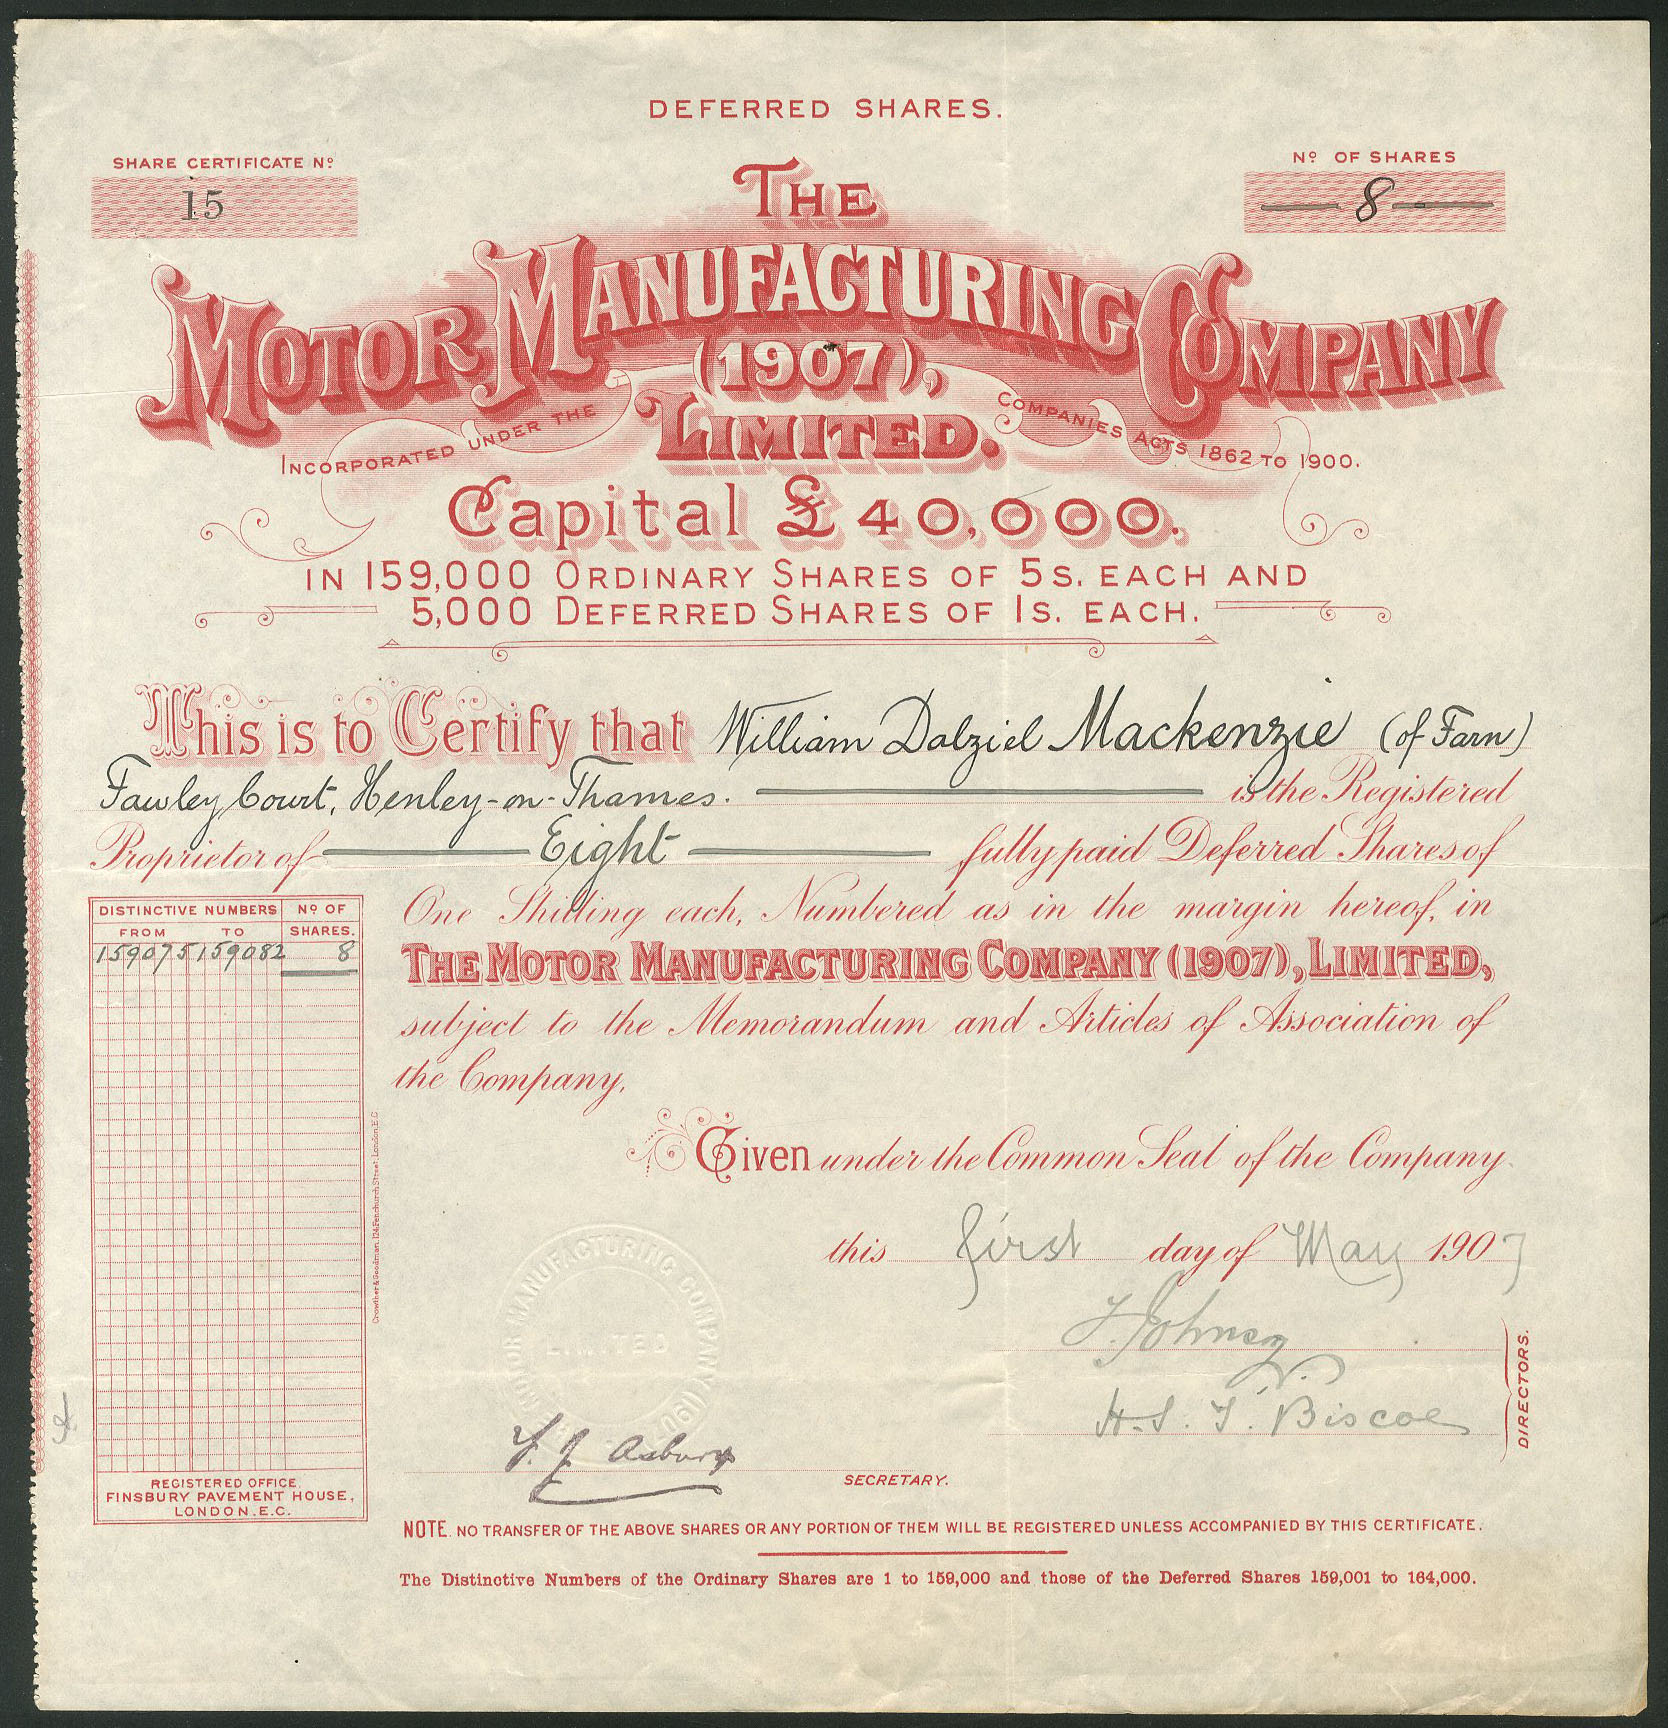 DEFERRED SHARES.
SHARE CERTIFICATE Nº
15
Nº OF SHARES
8
THE
MOTOR MANUFACTURING COMPANY
(1907),
LIMITED.
INCORPORATED UNDER THE COMPANIES ACTS 1862 TO 1900.
Capital £40,000.
IN 159,000 ORDINARY SHARES OF 5S. EACH AND
5,000 DEFERRED SHARES OF 1S. EACH.
This is to Certify that William Dalziel Mackenzie (of Farn)
Fawley Court, Henley-on-Thames. is the Registered
Proprietor of Eight fully paid Deferred Shares of
One Shilling each, Numbered as in the margin hereof, in
THE MOTOR MANUFACTURING COMPANY (1907), LIMITED,
subject to the Memorandum and Articles of Association of
the Company.
DISTINCTIVE NUMBERS Nº OF
FROM TO SHARES.
159075 159082 8
Given under the Common Seal of the Company
this first day of May 1907
H. S. F. Biscoe
DIRECTORS.
MOTOR MANUFACTURING COMPANY (1907)
LIMITED
F. J. Asbury
SECRETARY.
Crowther & Goodman, 124, Fenchurch Street, London, E.C
REGISTERED OFFICE,
FINSBURY PAVEMENT HOUSE,
LONDON. E.C.
NOTE. NO TRANSFER OF THE ABOVE SHARES OR ANY PORTION OF THEM WILL BE REGISTERED UNLESS ACCOMPANIED BY THIS CERTIFICATE.
The Distinctive Numbers of the Ordinary Shares are 1 to 159,000 and those of the Deferred Shares 159,001 to 164,000.